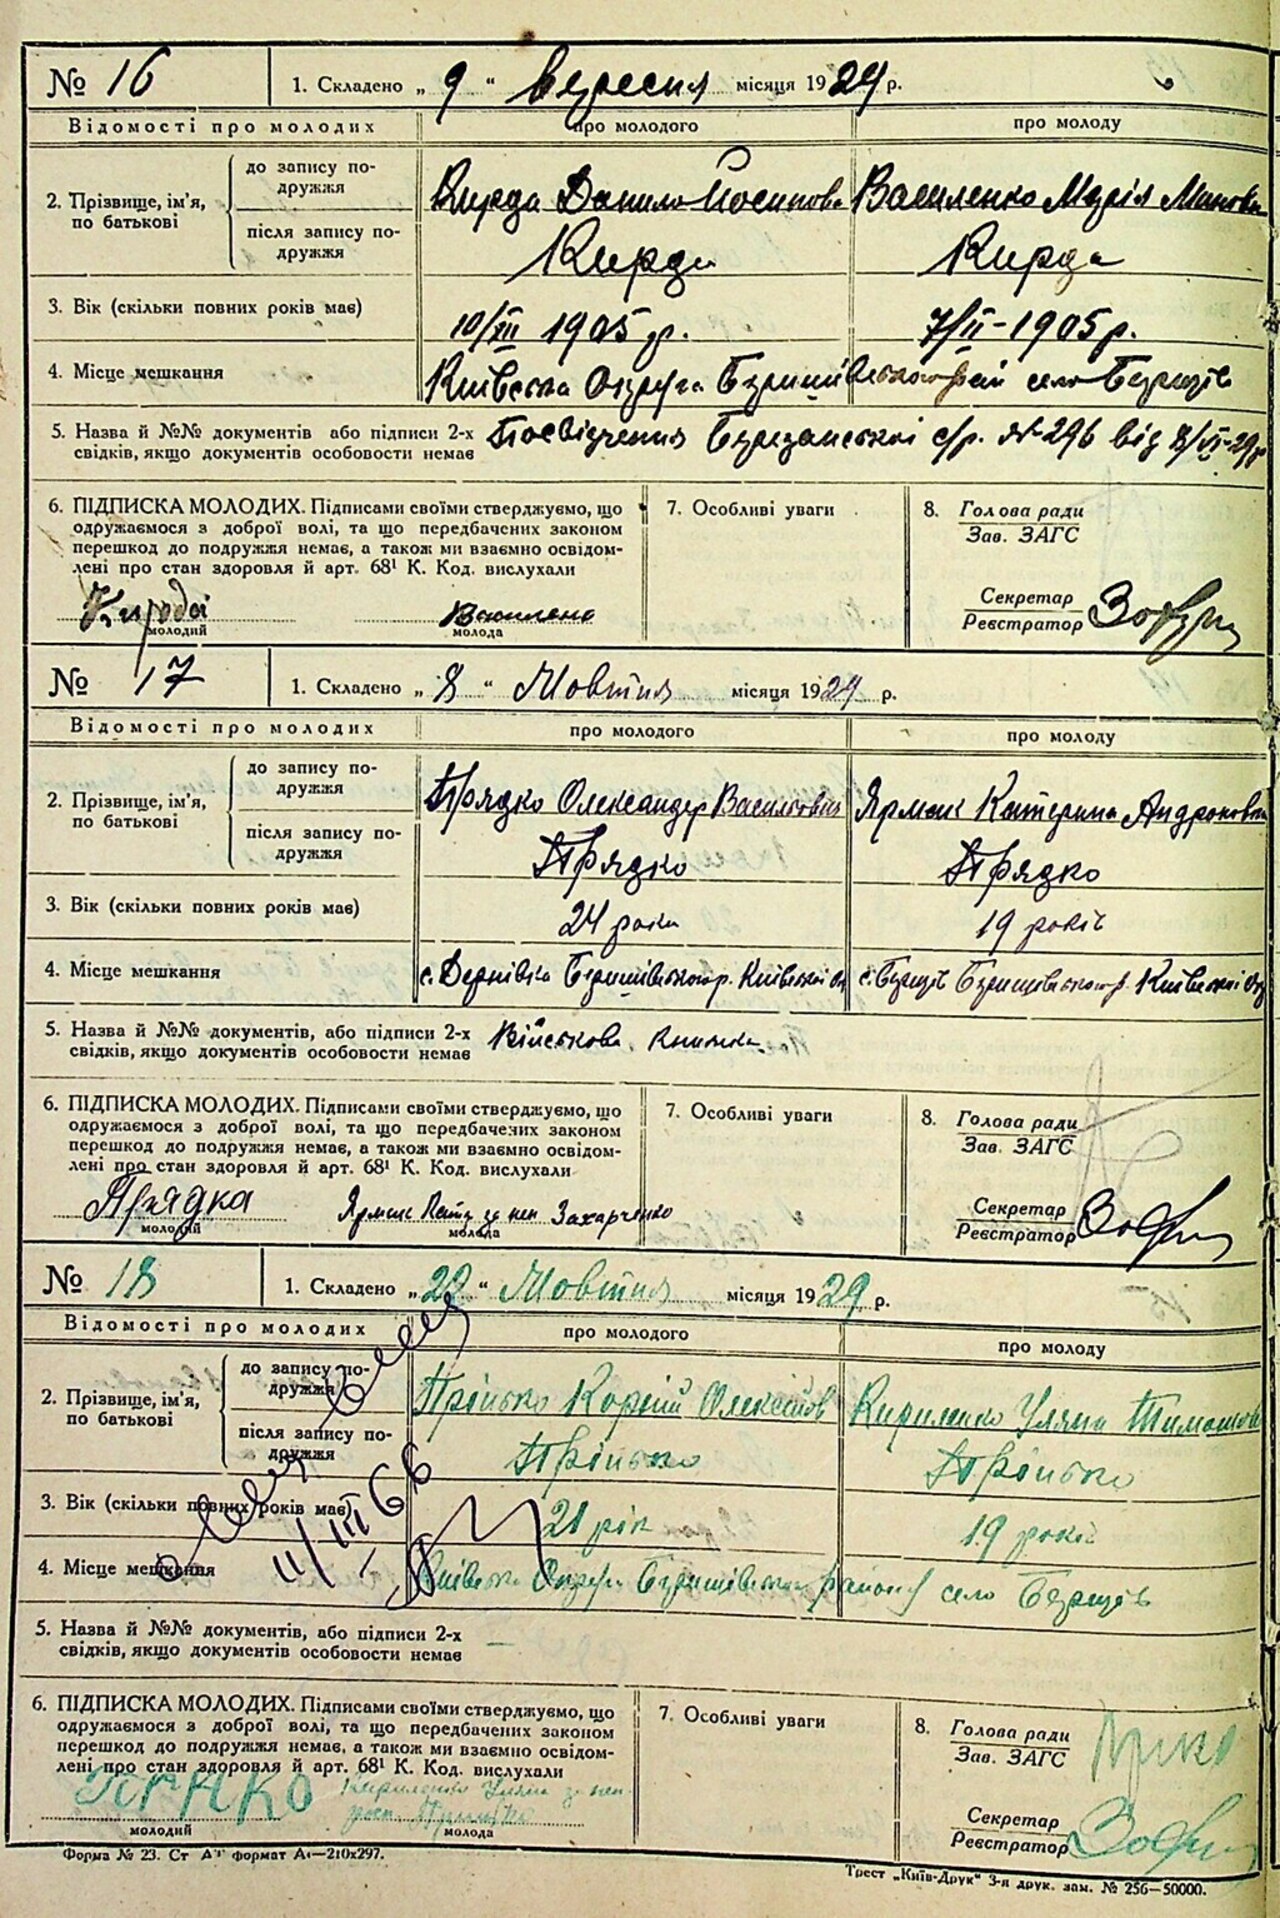 № 16 1. Складено „ 9 “ вересня місяця 1929 р.
Відомості про молодих про молодого про молоду
2. Прізвище, ім'я, по батькові
до запису подружжя Кирда Данило Йосипов Василенко Марія
після запису подружжя Кирда Кирда
3. Вік (скільки повних років має) 10/XII 1905 р. 7/II-1905 р.
4. Місце мешкання Київська Округа село
5. Назва й №№ документів або підписи 2-х Посвідчення с/р. № 296 від
свідків, якщо документів особовости немає
6. ПІДПИСКА МОЛОДИХ. Підписами своїми стверджуємо, що
одружаємося з доброї волі, та що передбачених законом
перешкод до подружжя немає, а також ми взаємно освідом-
лені про стан здоровля й арт. 68¹ К. Код. вислухали
7. Особливі уваги
8. Голова ради
Зав. ЗАГС
Секретар
Реєстратор
молодий молода
№ 17 1. Складено „ 8 “ Жовтня місяця 1929 р.
Відомості про молодих про молодого про молоду
2. Прізвище, ім'я, по батькові
до запису подружжя Прядко Олександер Васильович Ярмак Катерина Андроновна
після запису подружжя Прядко Прядко
3. Вік (скільки повних років має) 24 роки 19 років
4. Місце мешкання с. Київської с. Київської
5. Назва й №№ документів, або підписи 2-х Військова книжка
свідків, якщо документів особовости немає
6. ПІДПИСКА МОЛОДИХ. Підписами своїми стверджуємо, що
одружаємося з доброї волі, та що передбачених законом
перешкод до подружжя немає, а також ми взаємно освідом-
лені про стан здоровля й арт. 68¹ К. Код. вислухали
7. Особливі уваги
8. Голова ради
Зав. ЗАГС
Секретар
Реєстратор
Прядка Ярмак Захарченко
молодий молода
№ 18 1. Складено „ 22 “ Жовтня місяця 1929 р.
Відомості про молодих про молодого про молоду
2. Прізвище, ім'я, по батькові
до запису подружжя Прінько Корній Олексійов Кириленко Уляна Тимошов
після запису подружжя Прінько Прінько
3. Вік (скільки повних років має) 21 рік 19 років
11/III 66
4. Місце мешкання Київська Округа село
5. Назва й №№ документів, або підписи 2-х
свідків, якщо документів особовости немає
6. ПІДПИСКА МОЛОДИХ. Підписами своїми стверджуємо, що
одружаємося з доброї волі, та що передбачених законом
перешкод до подружжя немає, а також ми взаємно освідом-
лені про стан здоровля й арт. 68¹ К. Код. вислухали
7. Особливі уваги
8. Голова ради
Зав. ЗАГС
Секретар
Реєстратор
Кириленко Уляна
молодий молода
Форма № 23. Ст формат А₄—210х297.
Трест „Київ-Друк“ 3-я друк. зам. № 256—50000.